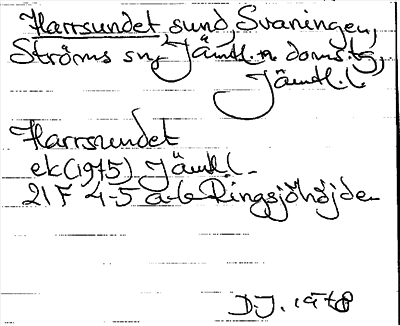 Harrsundet, sund, Svaningen,
Ströms sn, Jämtl. n. doms.tg,
Jämtl. l.
Harrsundet
ek (1975) Jämtl. l.
21F 4-5 a-b Ringsjöhöjden
D.J. 1978